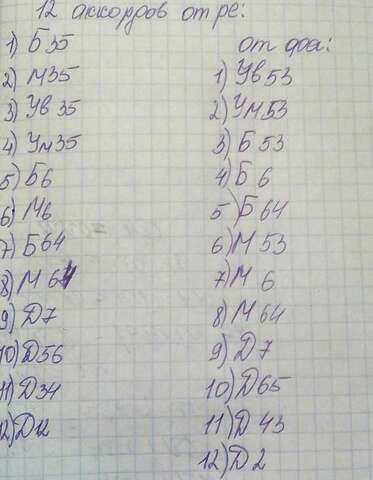 12 аккордов от ре:
1) Б35
2) М35
3) Ув 35
4) Ум35
5) Б6
6) М6
7) Б64
8) М 64
9) Д7
10) Д56
11) Д34
12) Д2
от фа:
1) Ув 53
2) Ум53
3) Б 53
4) Б 6
5) Б 64
6) М 53
7) М 6
8) М 64
9) Д7
10) Д65
11) Д 43
12) Д 2